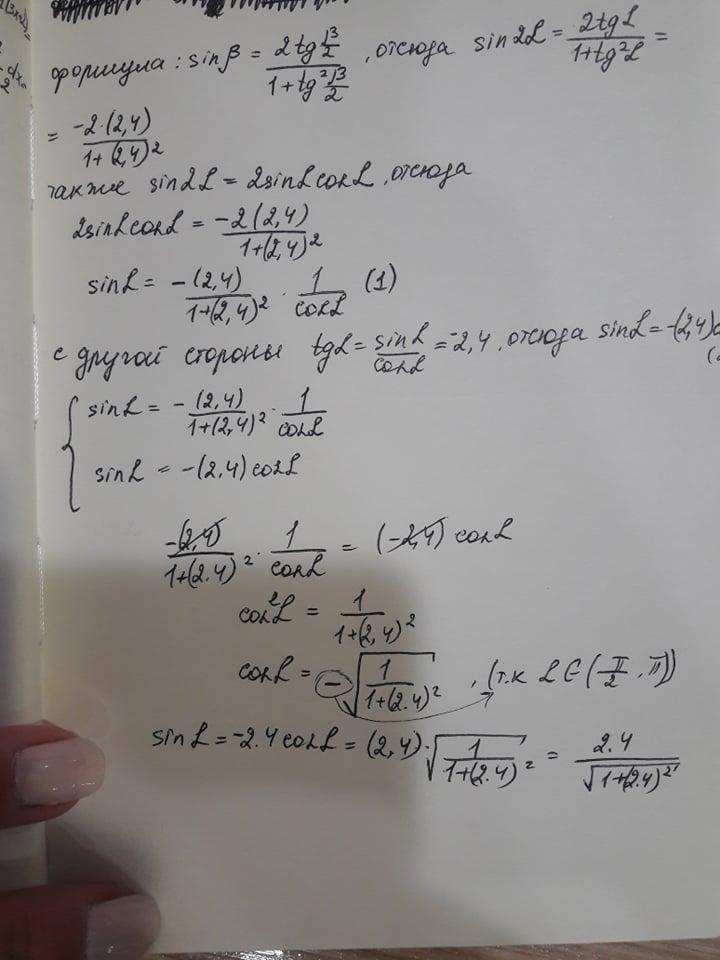 формула: sinβ = 2tg β/2 / 1+tg² β/2 , отсюда sin2L = 2tgL / 1+tg²L =
= -2·(2,4) / 1+(2,4)²
также sin2L = 2sinLcosL, отсюда
2sinLcosL = -2(2,4) / 1+(2,4)²
sinL = -(2,4) / 1+(2,4)² · 1 / cosL (1)
с другой стороны tgL = sinL / cosL = -2,4, отсюда sinL = -(2,4)c
{ sinL = -(2,4) / 1+(2,4)² · 1 / cosL
sinL = -(2,4) cosL
-(2,4) / 1+(2.4)² · 1 / cosL = (-2,4) cosL
cos²L = 1 / 1+(2,4)²
cosL = -√ 1 / 1+(2.4)² , (т.к L∈(π/2, π))
sinL = -2.4cosL = (2,4)·√ 1 / 1+(2.4)² = 2.4 / √1+(2.4)²